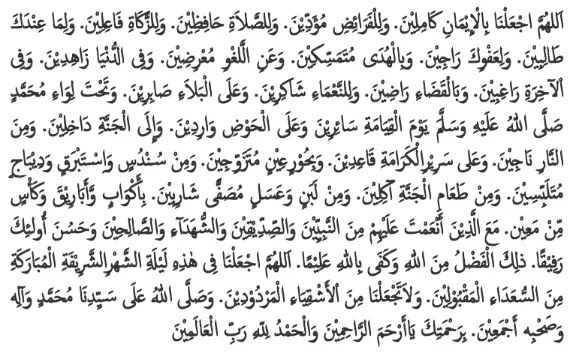 اَللهُمَّ اجْعَلْنَا بِالْإِيْمَانِ كَامِلِيْنَ. وَلِلْفَرَائِضِ مُؤَدِّيْنَ. وَلِلصَّلاَةِ حَافِظِيْنَ. وَلِلزَّكَاةِ فَاعِلِيْنَ. وَلِمَا عِنْدَكَ
طَالِبِيْنَ. وَلِعَفْوِكَ رَاجِيْنَ. وَبِالْهُدَى مُتَمَسِّكِيْنَ. وَعَنِ اللَّغْوِ مُعْرِضِيْنَ. وَفِى الدُّنْيَا زَاهِدِيْنَ. وَفِى
الْآخِرَةِ رَاغِبِيْنَ. وَبَالْقَضَاءِ رَاضِيْنَ. وَلِلنَّعْمَاءِ شَاكِرِيْنَ. وَعَلَى الْبَلاَءِ صَابِرِيْنَ. وَتَحْتَ لِوَاءِ مُحَمَّدٍ
صَلَّى اللهُ عَلَيْهِ وَسَلَّمَ يَوْمَ الْقِيَامَةِ سَائِرِيْنَ وَعَلَى الْحَوْضِ وَارِدِيْنَ. وَإِلَى الْجَنَّةِ دَاخِلِيْنَ. وَمِنَ
النَّارِ نَاجِيْنَ. وَعَلى سَرِيْرِالْكَرَامَةِ قَاعِدِيْنَ. وَبِحُوْرٍعِيْنٍ مُتَزَوِّجِيْنَ. وَمِنْ سُنْدُسٍ وَاِسْتَبْرَقٍ وَدِيْبَاجٍ
مُتَلَبِّسِيْنَ. وَمِنْ طَعَامِ الْجَنَّةِ آكِلِيْنَ. وَمِنْ لَبَنٍ وَعَسَلٍ مُصَفًّى شَارِبِيْنَ. بِأَكْوَابٍ وَّأَبَارِيْقَ وَكَأْسٍ
مِّنْ مَعِيْنٍ. مَعَ الَّذِيْنَ أَنْعَمْتَ عَلَيْهِمْ مِنَ النَّبِيِّيْنَ وَالصِّدِّيْقِيْنَ وَالشُّهَدَآءِ وَالصَّالِحِيْنَ وَحَسُنَ أُولئِكَ
رَفِيْقًا. ذلِكَ الْفَضْلُ مِنَ اللهِ وَكَفَى بِاللهِ عَلِيْمًا. اَللهُمَّ اجْعَلْنَا فِى هٰذِهِ لَيْلَةِ الشَّهْرِالشَّرِيْفَةِ الْمُبَارَكَةِ
مِنَ السُّعَدَاءِ الْمَقْبُوْلِيْنَ. وَلاَتَجْعَلْنَا مِنَ اْلأَشْقِيَاءِ الْمَرْدُوْدِيْنَ. وَصَلَّى اللهُ عَلَى سَيِّدِنَا مُحَمَّدٍ وَآلِهِ
وَصَحْبِهِ أَجْمَعِيْنَ. بِرَحْمَتِكَ يَاأَرْحَمَ الرَّاحِمِيْنَ وَالْحَمْدُ لِلّٰهِ رَبِّ الْعَالَمِيْنَ